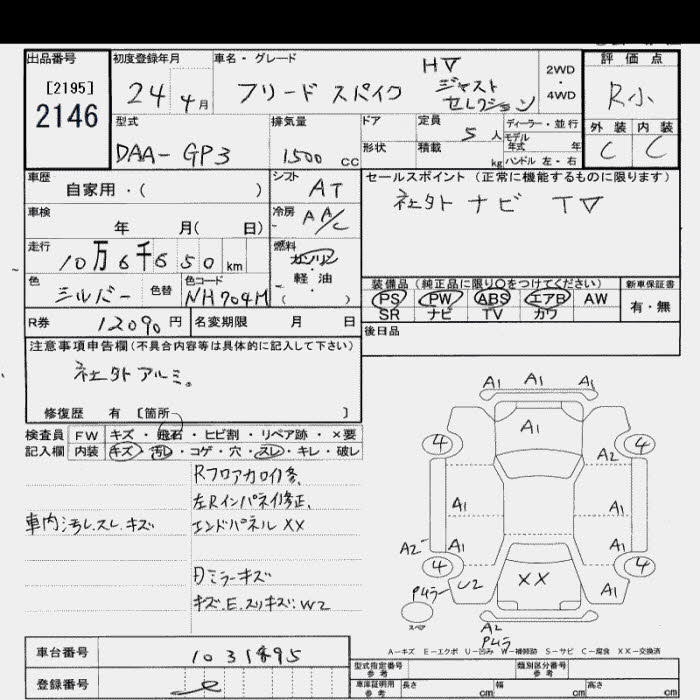 出品番号 初度登録年月 車名・グレード 評価点
[2195]
2146
24 4月 フリード スパイク HV ジャスト セレクション
2WD ・ 4WD
R小
型式 排気量 ドア 定員 5人 ディーラー・並行
外装 内装
DAA-GP3 1500cc 形状 積載 kg モデル年式 年 ハンドル 左・右
C C
車歴 自家用・( ) シフト AT
セールスポイント (正常に機能するものに限ります)
社外 ナビ TV
車検 年 月( 日) 冷房 AA/C
走行 10万6千650km 燃料 ガソリン・軽油 ( )
色 シルバー 色替 色コード NH704M
装備品 (純正品に限り○をつけてください) 新車保証書
PS PW ABS エアB AW 有・無
SR ナビ TV カワ
R券 12090円 名変期限 月 日
後日品
注意事項申告欄(不具合内容等は具体的に記入して下さい)
社外アルミ。
修復歴 有 [箇所 ]
検査員 FW キズ・飛石・ヒビ割・リペア跡・×要
記入欄 内装 キズ・汚レ・コゲ・穴・スレ・キレ・破レ
左Rインパネ修正、
車内汚レ.スレ.キズ エンドパネル XX
ミラーキズ
A1 A1 A1
A1
4 4
A2
A1 A1
A2 A1 A1
4 4
U2 XX A1
スペア
A2
A-キズ E-エクボ U-凹み W-補修跡 S-サビ C-腐食 XX-交換済
車台番号
登録番号
型式指定番号 参考 類別区分番号 参考
車庫証明用 参考 長さ cm 幅 cm 高さ cm